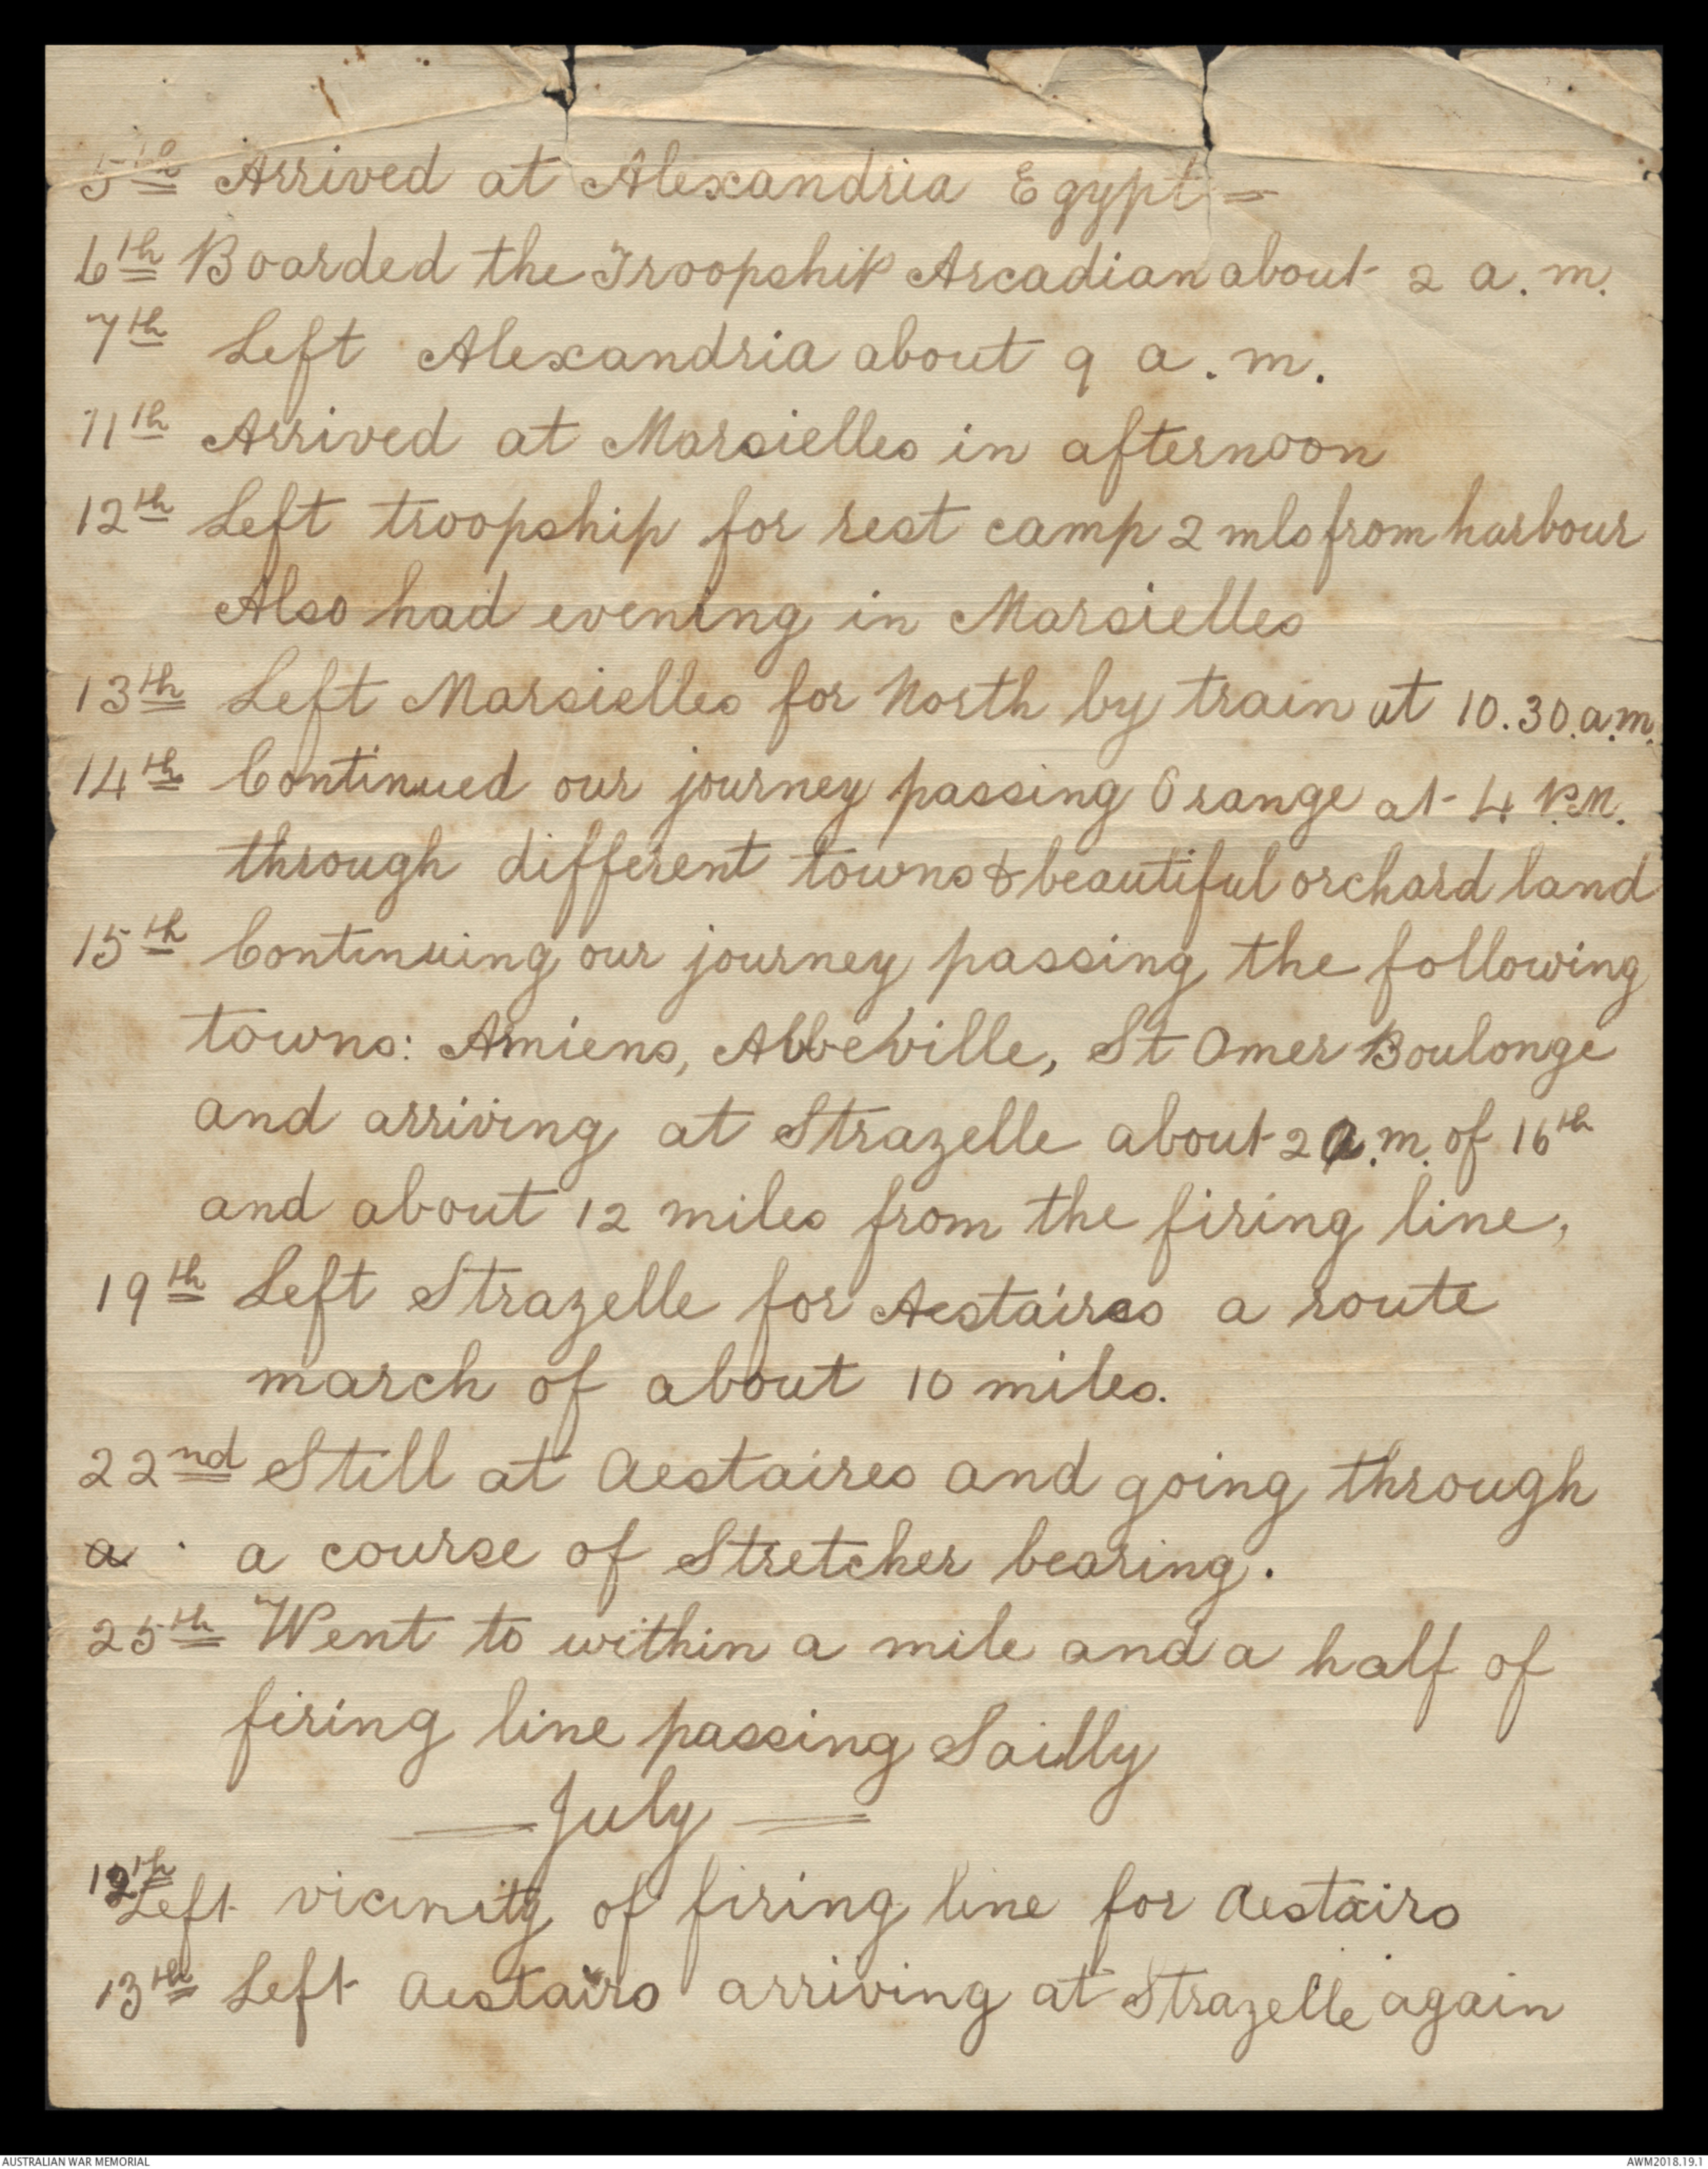 5th Arrived at Alexandria Egypt =
6th Boarded the Troopship Arcadian about 2 a.m.
7th Left Alexandria about 9 a.m.
11th Arrived at Marsielles in afternoon
12th Left troopship for rest camp 2 mls from harbour
Also had evening in Marsielles
13th Left Marsielles for North by train at 10.30.a.m.
14th Continued our journey passing Orange at 4 P.M.
through different towns & beautiful orchard land
15th Continuing our journey passing the following
towns: Amiens, Abbeville, St Omer Boulonge
and arriving at Strazelle about 2 a.m. of 16th
and about 12 miles from the firing line,
19th Left Strazelle for Aestaires a route
march of about 10 miles.
22nd Still at Aestaires and going through
a a course of Stretcher bearing.
25th Went to within a mile and a half of
firing line passing Sailly
July
12th Left vicinity of firing line for Aestairs
13th Left Aestairs arriving at Strazelle again
AUSTRALIAN WAR MEMORIAL
AWM2018.19.1